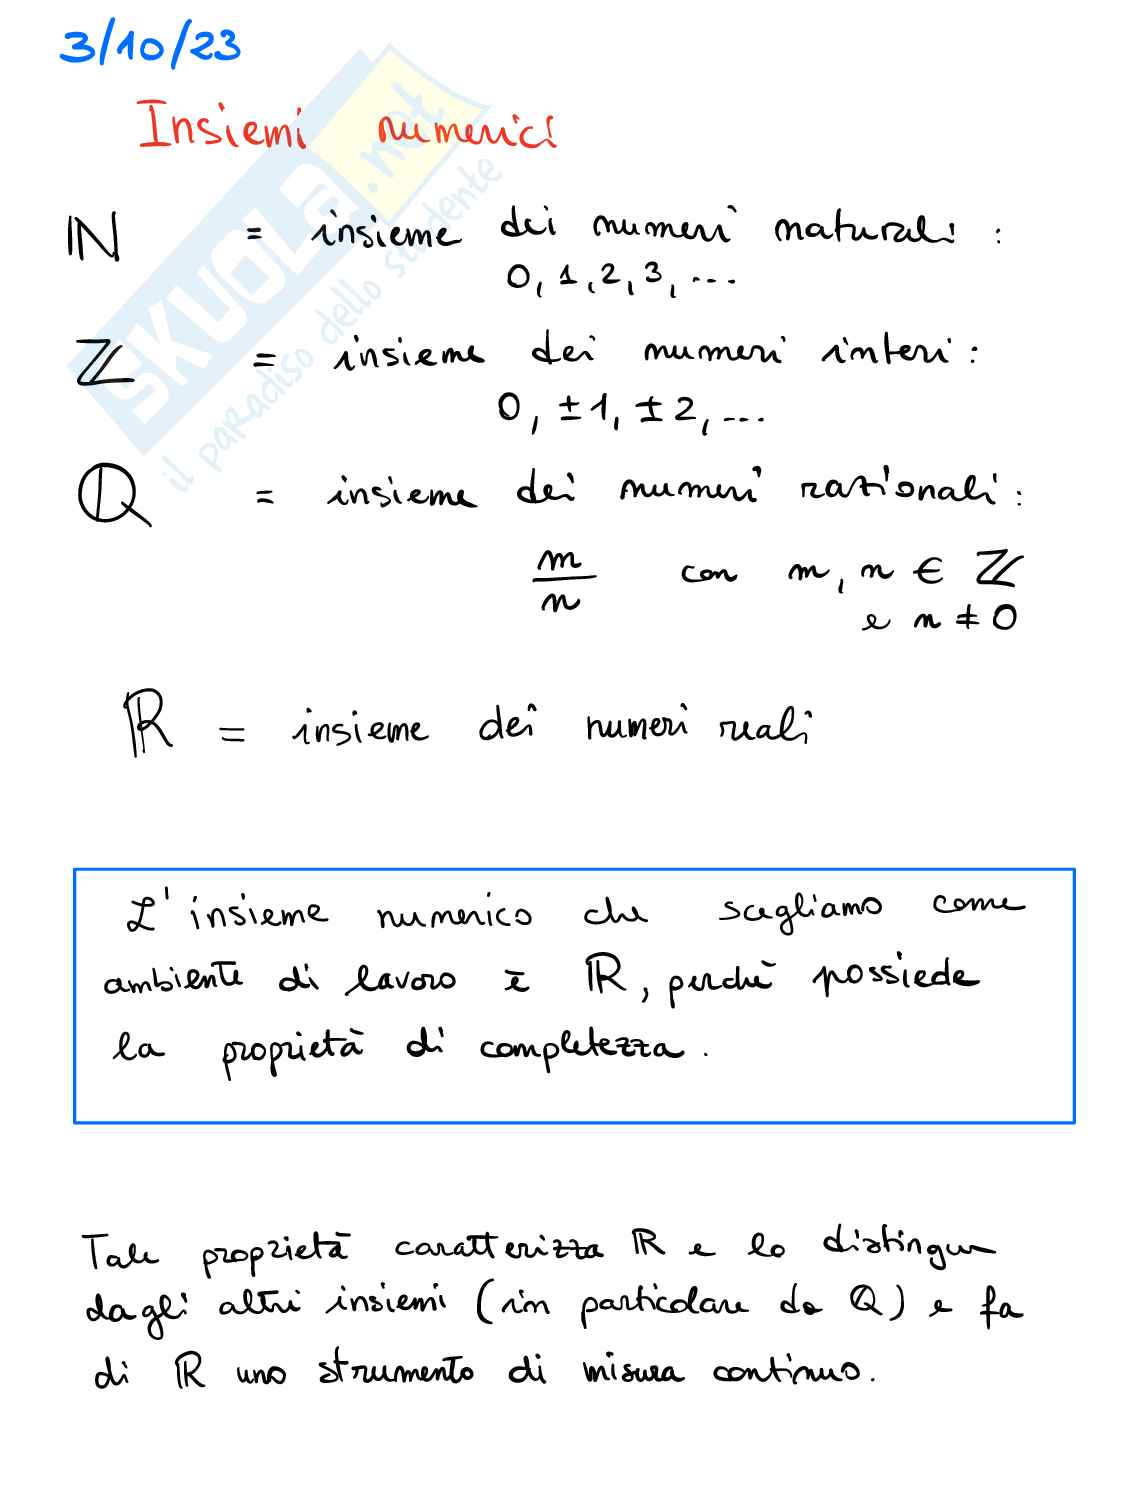 3/10/23
Insiemi numerici
ℕ = insieme dei numeri naturali :
0, 1, 2, 3, ...
ℤ = insieme dei numeri interi :
0, ±1, ±2, ...
ℚ = insieme dei numeri razionali :
m/n con m, n ∈ ℤ
e n ≠ 0
ℝ = insieme dei numeri reali
L'insieme numerico che scegliamo come
ambiente di lavoro è ℝ, perchè possiede
la proprietà di completezza.
Tale proprietà caratterizza ℝ e lo distingue
dagli altri insiemi (in particolare da ℚ) e fa
di ℝ uno strumento di misura continuo.
SKUOLA.net
il paradiso dello studente